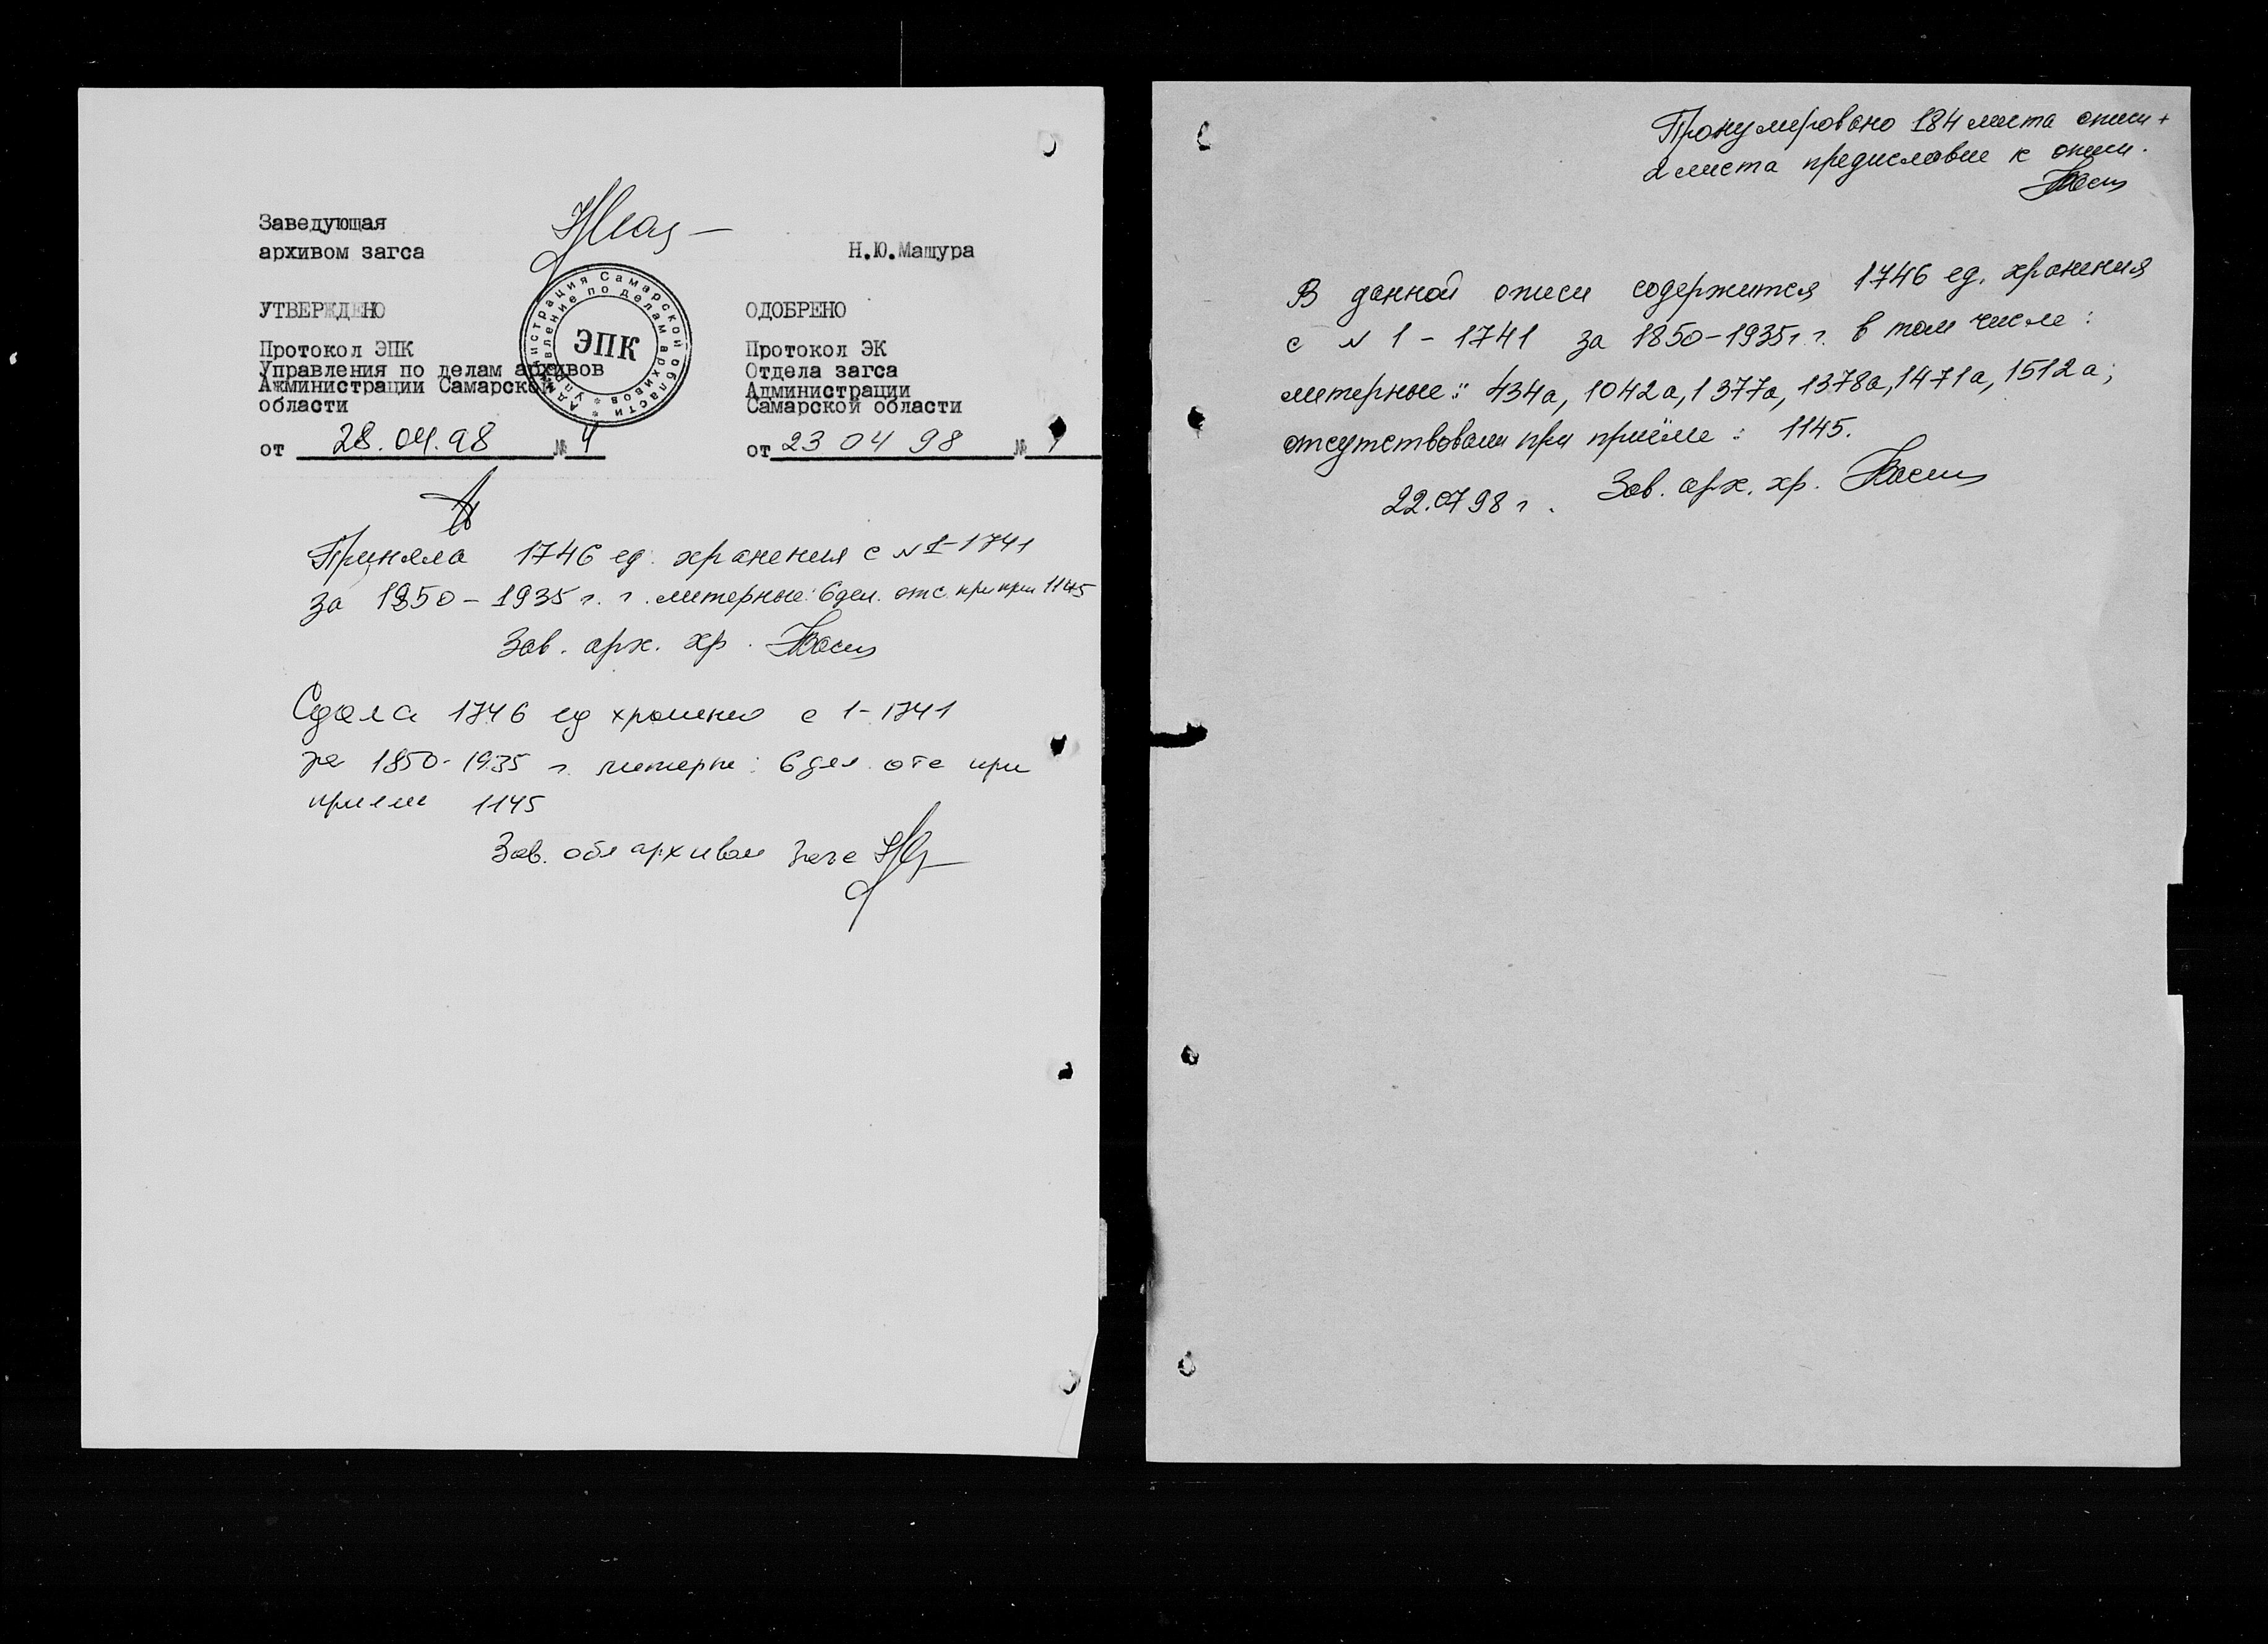 Заведующая
архивом загса
Н.Ю.Мащура
УТВЕРЖДЕНО
Протокол ЭПК
Управления по делам архивов
Администрации Самарской
области
от 28.04.98 № 4
Администрация Самарской области * Управление по делам архивов *
ЭПК
ОДОБРЕНО
Протокол ЭК
Отдела загса
Администрации
Самарской области
от 23 04 98 №
Приняла 1746 ед. хранения с N 1-1741
за 1850-1935 г. г. литерные: 6 дел. отс. при прии 1145
Зав. арх. хр.
Сдала 1746 ед хранения с 1-1741
за 1850-1935 г. литерн: 6 дел. отс при
приеме 1145
Зав. обл архивом загс
Пронумеровано 184 листа описи +
2 листа предисловие к описи.
В данной описи содержится 1746 ед. хранения
с N 1 - 1741 за 1850-1935 г. г. в том числе:
литерные: 434а, 1042а, 1377а, 1378а, 1471а, 1512а;
отсутствовали при приёме: 1145.
22.07 98 г. Зав. арх. хр.